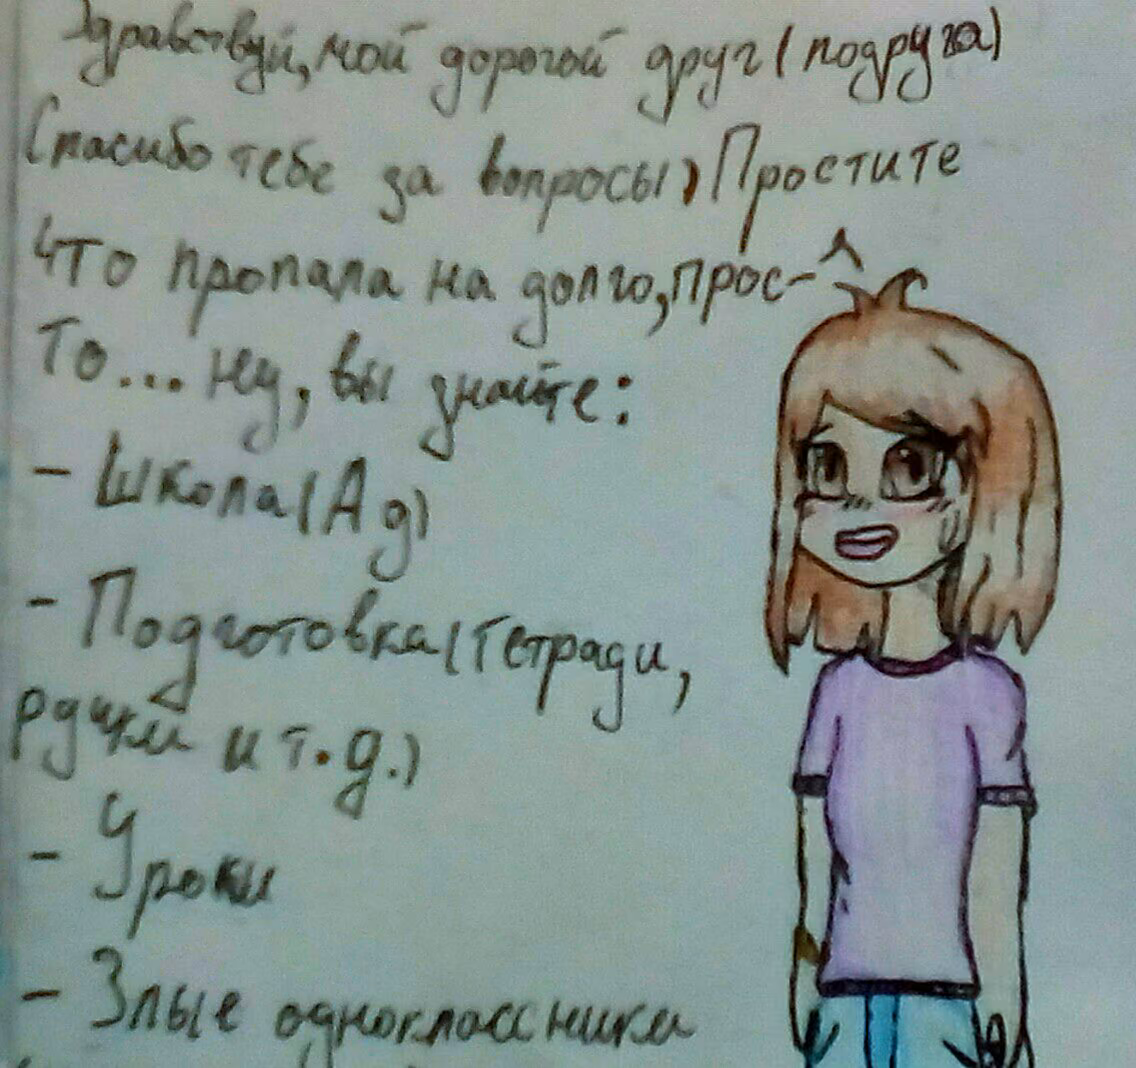 Здравствуй, мой дорогой друг (подруга)
Спасибо тебе за вопросы) Простите
что пропала на долго, прос-
то... ну, вы знайте:
- Школа (Ад)
- Подготовка (Тетради,
ручки и т.д.)
- Уроки
- Злые одноклассники